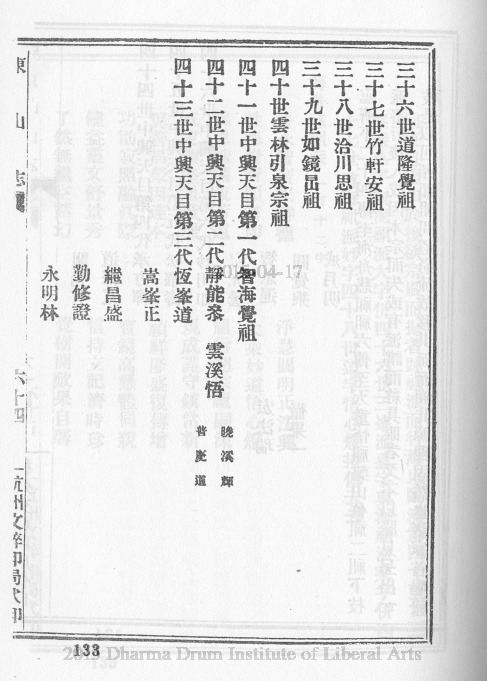 三十六世道隆覺祖
三十七世竹軒安祖
三十八世洽川思祖
三十九世如鏡嵒祖
四十世雲林引泉宗祖
四十一世中興天目第一代智海覺祖
四十二世中興天目第二代靜能叅 雲溪悟
曉溪輝
普慶道
四十三世中興天目第三代恆峯道
嵩峯正
繼昌盛
勤修證
永明林
山 志
六十四
杭州文粹印局代印
133
2019-04-17
2019 Dharma Drum Institute of Liberal Arts